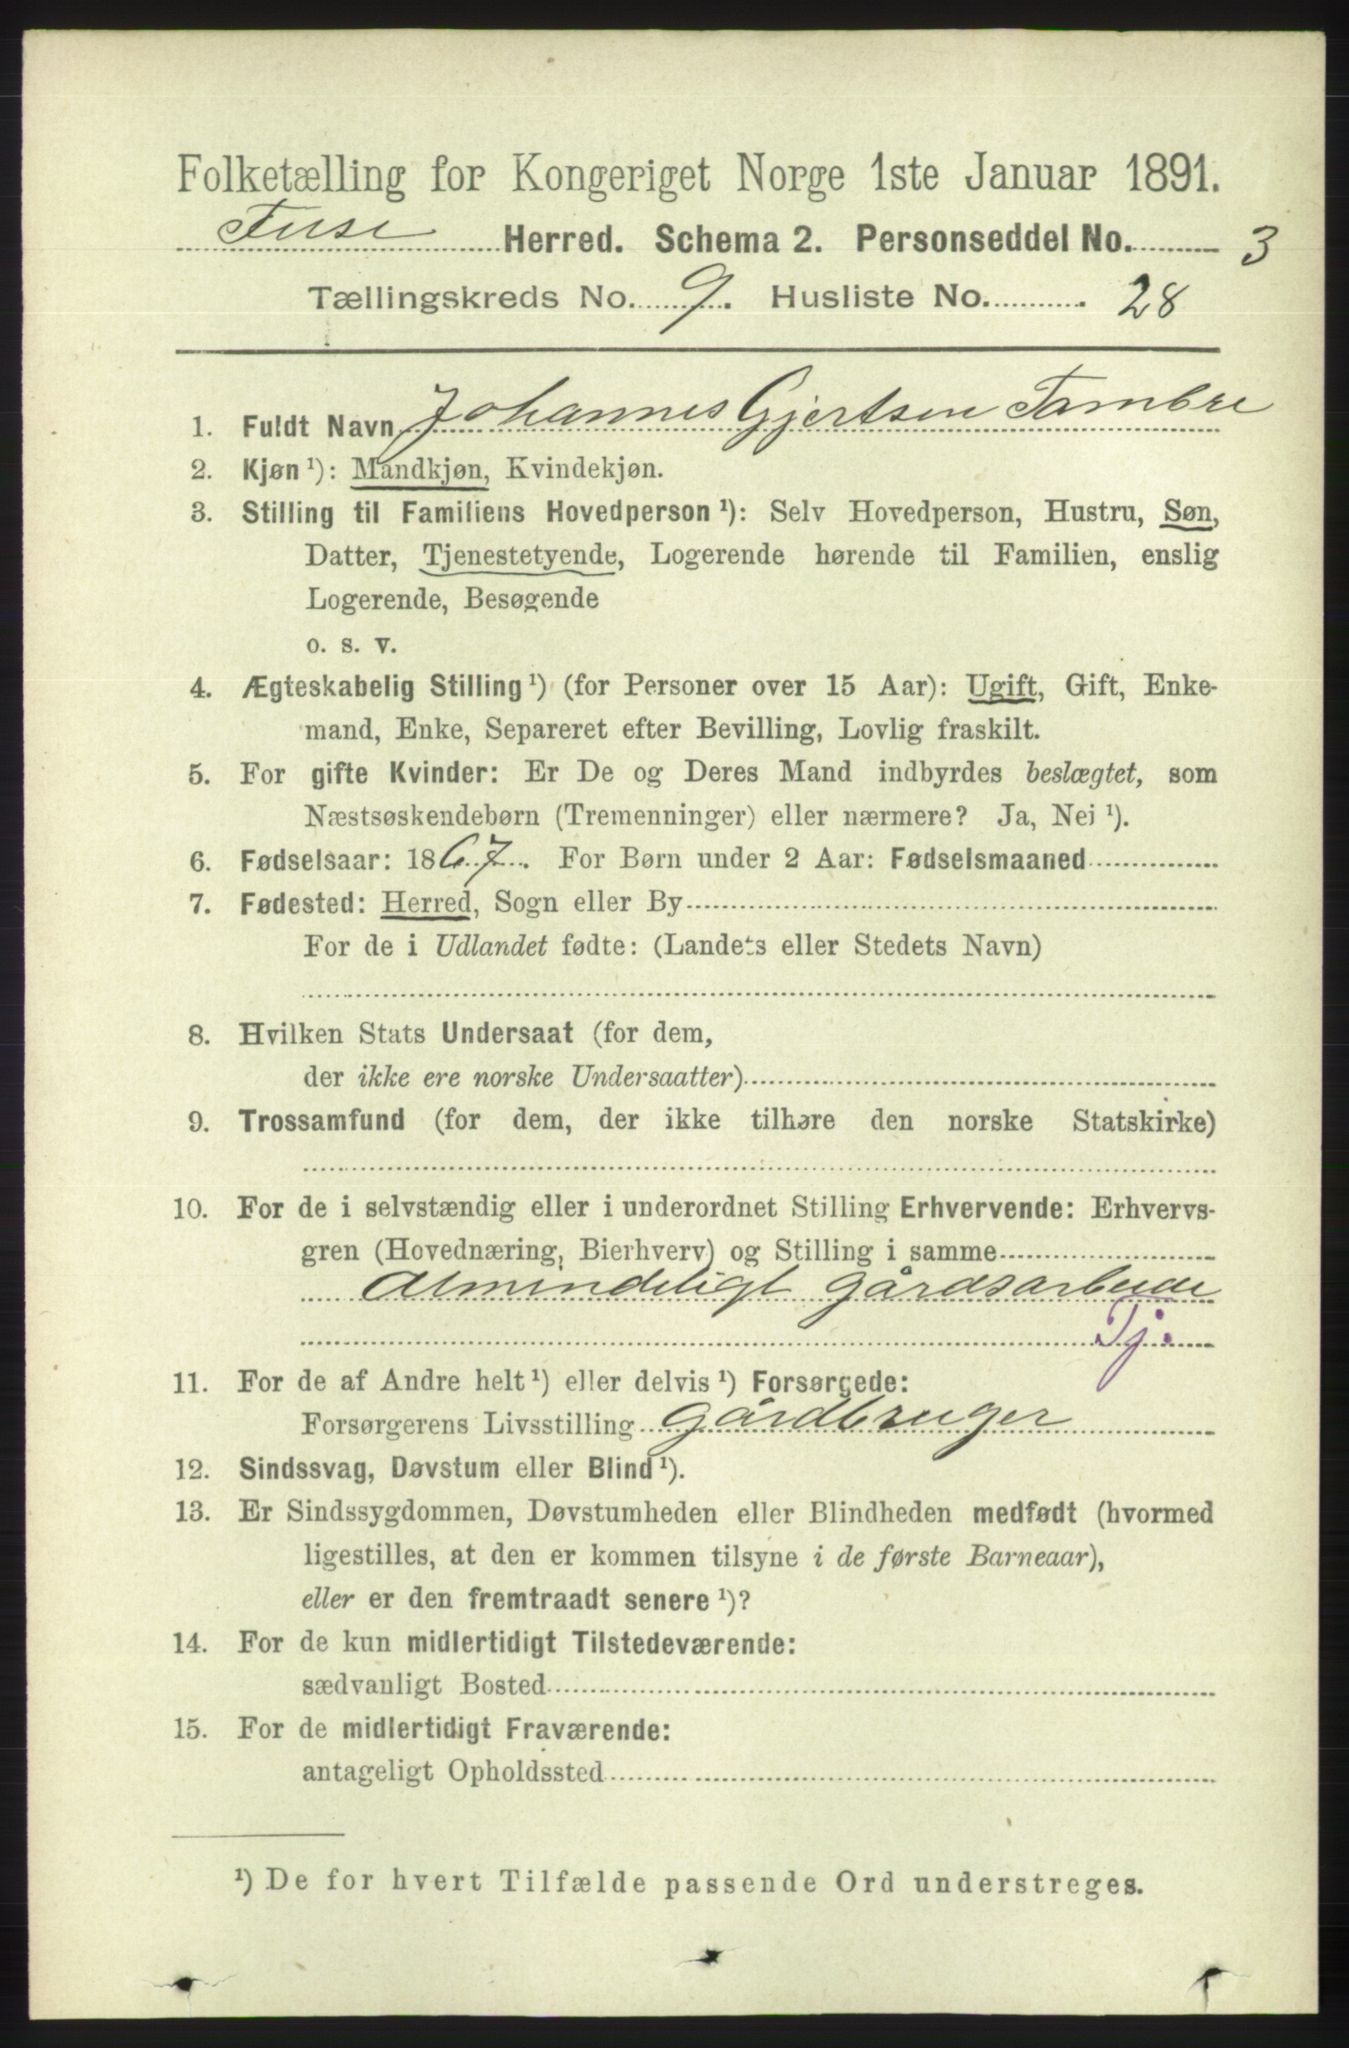 Folketælling for Kongeriget Norge 1ste Januar 1891.
Fuse Herred. Schema 2. Personseddel No. 3
Tællingskreds No. 9. Husliste No. 28
1. Fuldt Navn Johannes Gjertsen Tambre
2. Kjøn ¹): Mandkjøn, Kvindekjøn.
3. Stilling til Familiens Hovedperson ¹): Selv Hovedperson, Hustru, Søn,
Datter, Tjenestetyende, Logerende hørende til Familien, enslig
Logerende, Besøgende
o. s. v.
4. Ægteskabelig Stilling ¹) (for Personer over 15 Aar): Ugift, Gift, Enke-
mand, Enke, Separeret efter Bevilling, Lovlig fraskilt.
5. For gifte Kvinder: Er De og Deres Mand indbyrdes beslægtet, som
Næstsøskendebørn (Tremenninger) eller nærmere? Ja, Nei ¹).
6. Fødselsaar: 1867. For Børn under 2 Aar: Fødselsmaaned
7. Fødested: Herred, Sogn eller By
For de i Udlandet fødte: (Landets eller Stedets Navn)
8. Hvilken Stats Undersaat (for dem,
der ikke ere norske Undersaatter)
9. Trossamfund (for dem, der ikke tilhøre den norske Statskirke)
10. For de i selvstændig eller i underordnet Stilling Erhvervende: Erhvervs-
gren (Hovednæring, Bierhverv) og Stilling i samme
Almindeligt gårdsarbeide
Tj.
11. For de af Andre helt ¹) eller delvis ¹) Forsørgede:
Forsørgerens Livsstilling Gårdbruger
12. Sindssvag, Døvstum eller Blind ¹).
13. Er Sindssygdommen, Døvstumheden eller Blindheden medfødt (hvormed
ligestilles, at den er kommen tilsyne i de første Barneaar),
eller er den fremtraadt senere ¹)?
14. For de kun midlertidigt Tilstedeværende:
sædvanligt Bosted
15. For de midlertidigt Fraværende:
antageligt Opholdssted
¹) De for hvert Tilfælde passende Ord understreges.